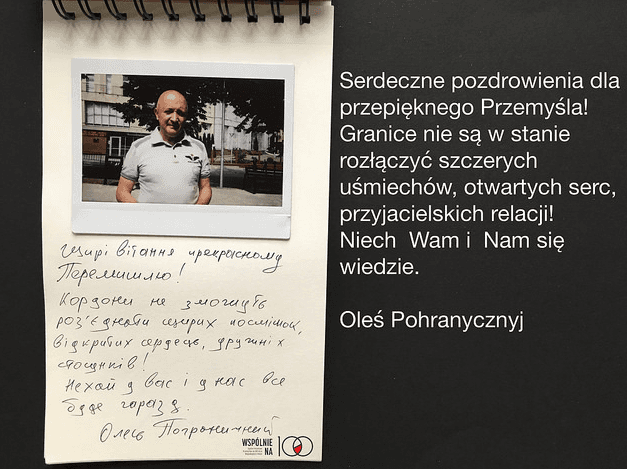 Щирі вітання прекрасному
Перемишлю!
Кордони не зможуть
роз'єднати щирих посмішок,
відкритих сердець, дружніх
стосунків!
Нехай у вас і у нас все
буде гаразд.
Олесь Пограничний
WSPÓLNIE
NA
100
Serdeczne pozdrowienia dla
przepięknego Przemyśla!
Granice nie są w stanie
rozłączyć szczerych
uśmiechów, otwartych serc,
przyjacielskich relacji!
Niech Wam i Nam się
wiedzie.
Oleś Pohranycznyj